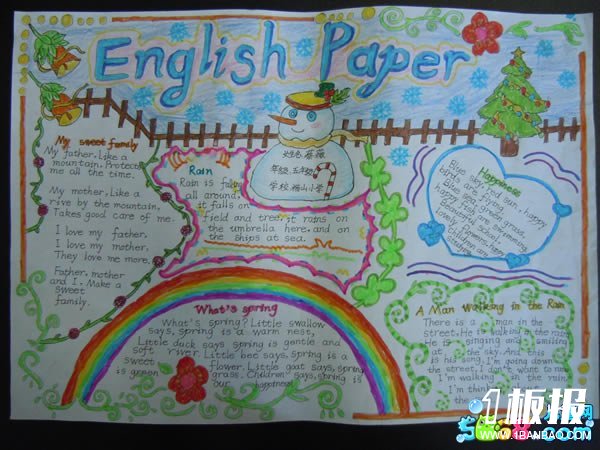 English Paper
My sweet family
My father, like a
mountain. Protects
me all the time.
My mother, like a
rive by the mountain.
Takes good care of me.
I love my father.
I love my mother.
They love me more.
Father, mother
and I. Make a
sweet
family.
Rain
Rain is falling
all around.
it falls on
field and tree, it rains on
the umbrella here. and on
the ships at sea.
姓名:蔷薇
年级:五年级
学校:福山小学
Happiness
Blue sky, for sun, happy
birds are flying
Blue sea, green grass,
happy fish are swimming
Beautiful school,
lovely flowers, happy
children are
What's spring
What's spring? Little swallow
says, spring is a warn nest,
Little duck says spring is gentle and
soft river. Little bee says, spring is a
sweet flower. Little goat says, spring
is green grass. Children says, spring is
our happiness!
A Man Walking in the Rain
There is a man in the
street. He is walking in the rain
He is singing and smiling
at the sky. And this
is his song. I'm going down
the street, I don't want to
I'm walking in the rain
I'm
the
1板报
WWW.1BANBAO.COM